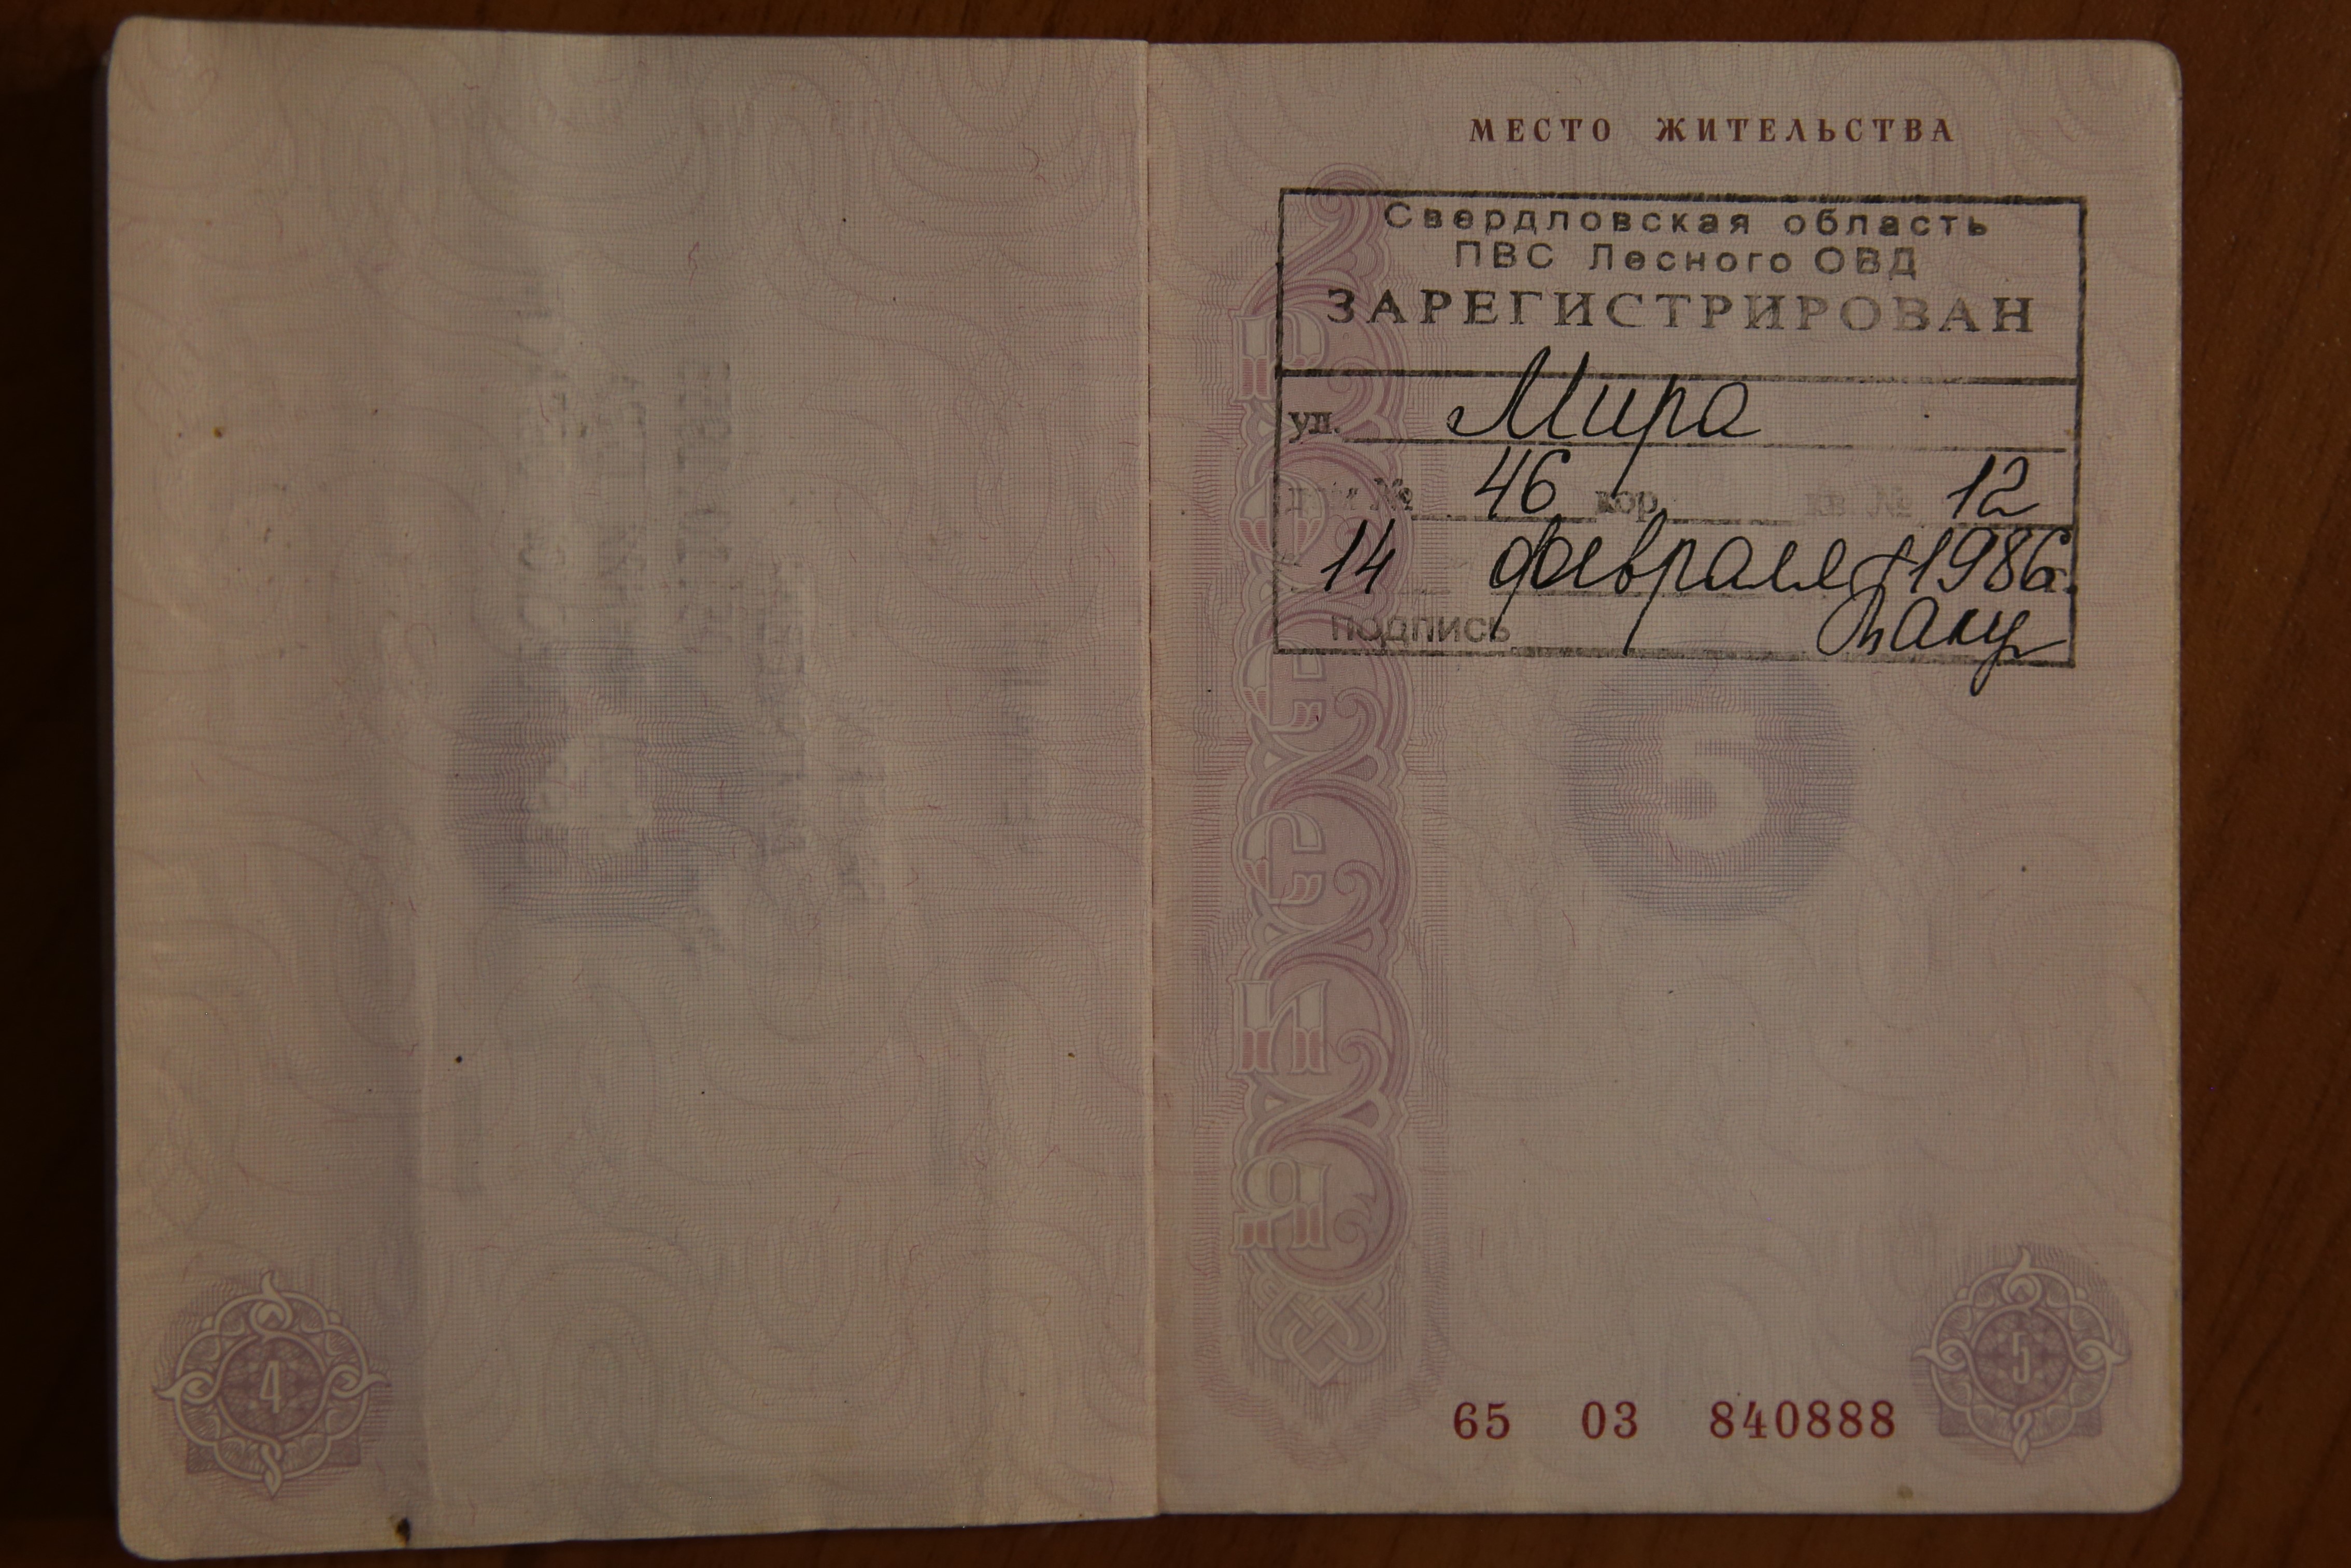 МЕСТО ЖИТЕЛЬСТВА
Свердловская область
ПВС Лесного ОВД
ЗАРЕГИСТРИРОВАН
ул. Мира
дом № 46 кор. кв № 12
14 февраля 1986г.
подпись
5
РОССИЯ
4
5
65 03 840888